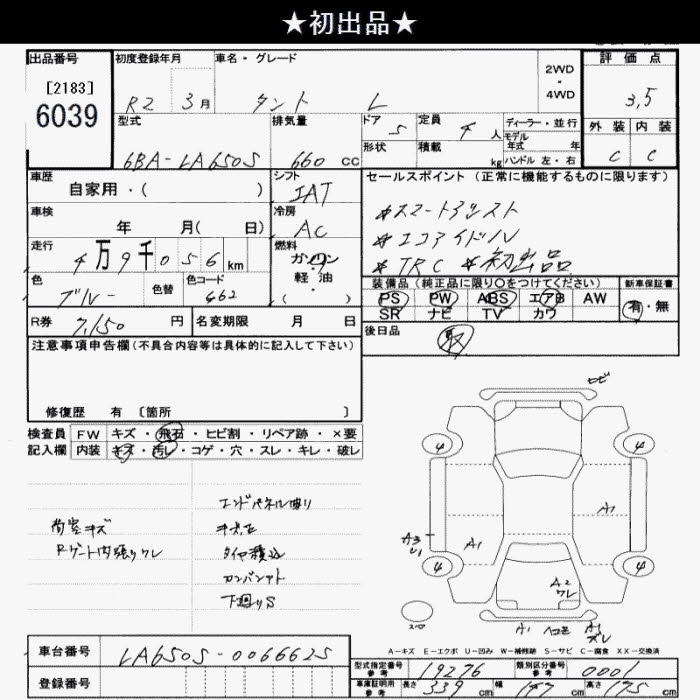 ★初出品★
出品番号 初度登録年月 車名・グレード 2WD・4WD 評価点
[2183]
6039
R2 3月 タント L 3.5
型式 排気量 ドア 5 定員 4人 ディーラー・並行 外装 内装
モデル年式 年
形状 積載 kg ハンドル 左・右
6BA-LA650S 660cc C C
車歴 シフト セールスポイント (正常に機能するものに限ります)
自家用・( ) IAT
*スマートアシスト
車検 冷房
年 月( 日) AC
*エコアイドル
走行 燃料
4万9千056km ガソリン・軽油( )
*TRC *初出品
色 色替 色コード
ブルー G62
装備品 (純正品に限り○をつけてください) 新車保証書
PS PW ABS エアB AW 有・無
SR ナビ TV カワ
R券 7,150円 名変期限 月 日
後日品 取
注意事項申告欄(不具合内容等は具体的に記入して下さい)
修復歴 有 〔箇所 〕
検査員 FW キズ・飛石・ヒビ割・リペア跡・×要
記入欄 内装 キズ・汚レ・コゲ・穴・スレ・キレ・破レ
荷室キズ
Rゲート内張りワレ
タイヤ積込
下廻りS
4 4
A3
A1 A1
4 4
A2
ワレ
A1
A-キズ E-エクボ U-凹み W-補修跡 S-サビ C-腐食 XX-交換済
車台番号 LA650S-0066625
登録番号
型式指定番号 参考 19276 類別区分番号 参考 0001
車庫証明用 参考 長さ 339cm 幅 147cm 高さ 175cm